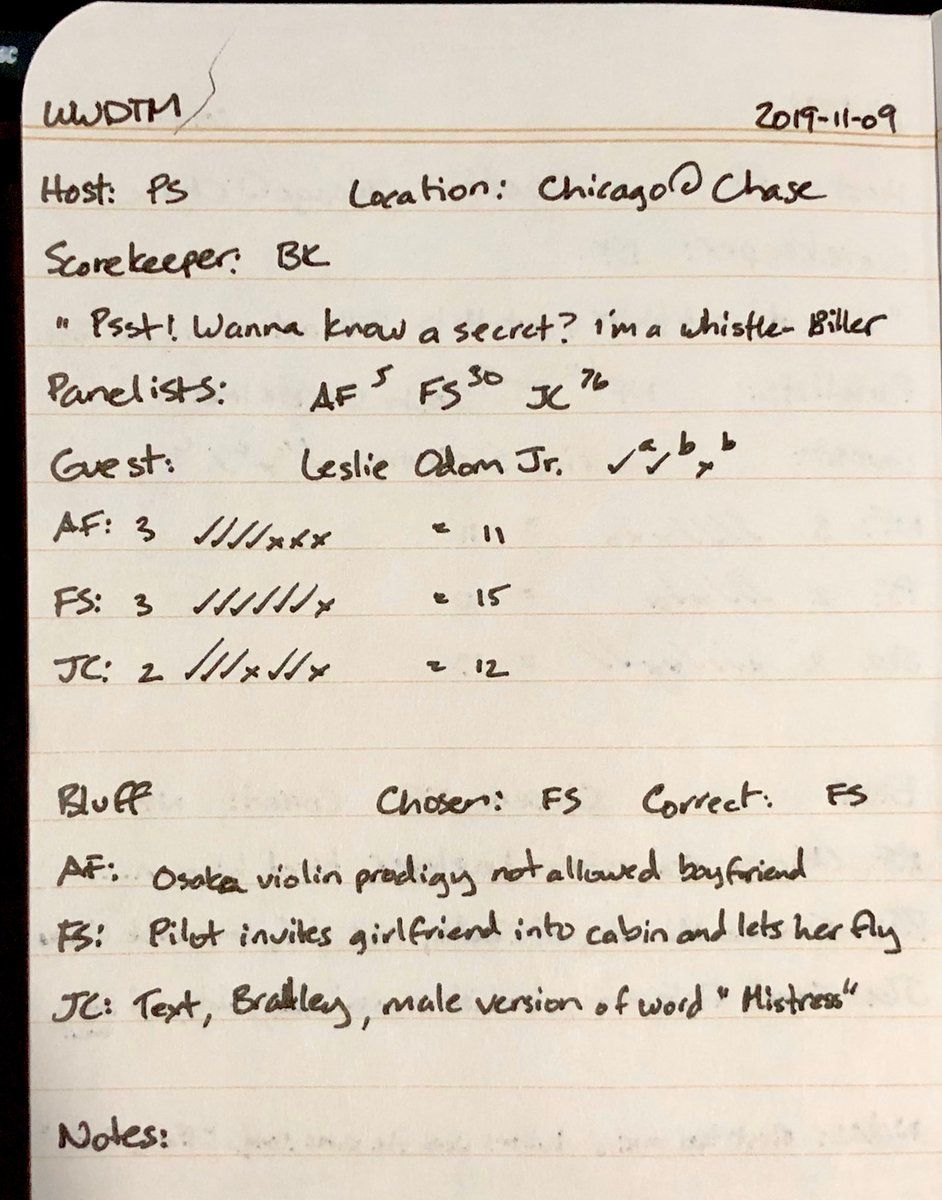 WWDTM 2019-11-09
Host: PS Location: Chicago@Chase
Scorekeeper: BK
" Psst! Wanna know a secret? I'm a whistle-Biller
Panelists: AF 5 FS 30 JC 76
Guest: Leslie Odom Jr. ✓a✓b×b
AF: 3 ✓✓✓✓××× = 11
FS: 3 ✓✓✓✓✓✓× = 15
JC: 2 ✓✓✓×✓✓× = 12
Bluff Chosen: FS Correct: FS
AF: Osaka violin prodigy not allowed boyfriend
FS: Pilot invites girlfriend into cabin and lets her fly
JC: Text, Bradley, male version of word "Mistress"
Notes: